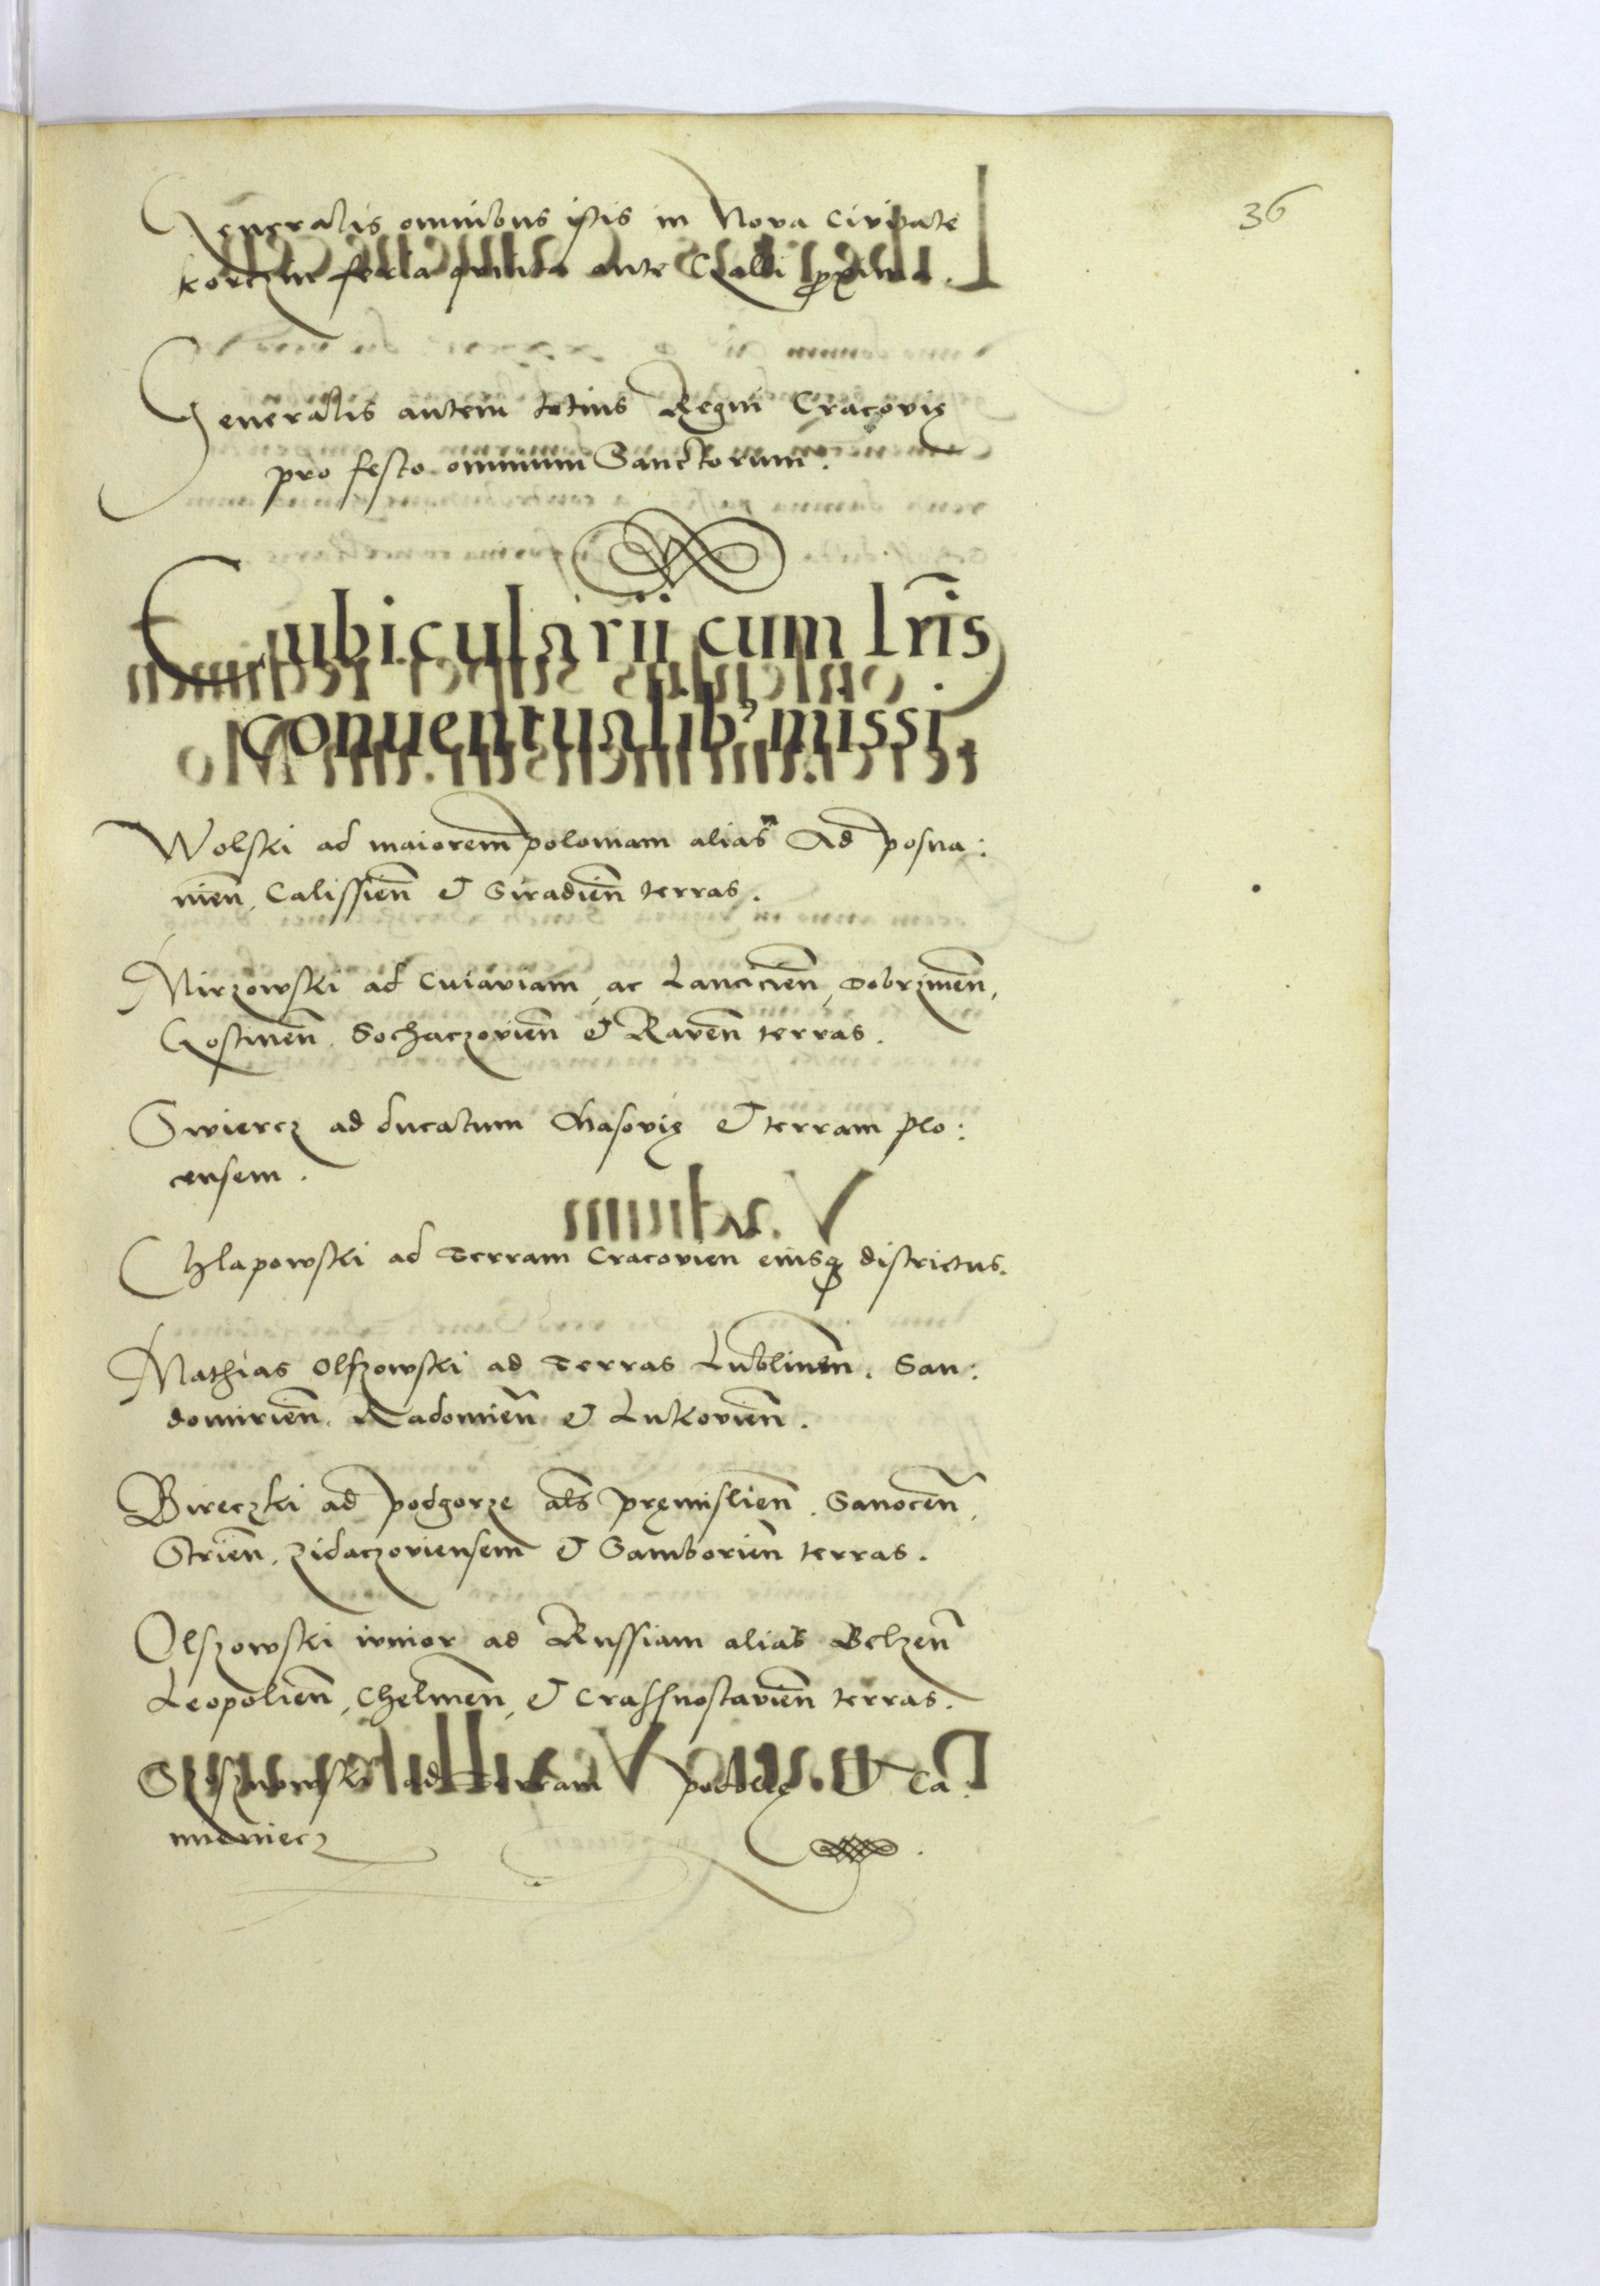 36
Generalis omnibus istis in Nova Civitate
korczin feria quinta ante Galli proxima.
Generalis autem totius Regni Cracovię
pro festo omnium Sanctorum.
Cubicularii cum lr̃is
conuentualib᾽ missi.
Wolski ad maiorem poloniam alias Ad posna:
nieñ, Calissieñ et Siradieñ terras.
Mirzowski ad Cuiaviam, ac Lancicieñ, Dobrzineñ,
Gostineñ, Sochaczovieñ et Raveñ terras.
Swiercz ad ducatum Masovię et terram plo:
censem.
Chlapowski ad Terram Cracovien eiusq districtus.
Mathias Olszowski ad Terras Lublineñ. San:
domirieñ. Radomieñ et Lukovieñ.
Bireczki ad podgorze als pręmislieñ. Sanoceñ,
Strieñ. Zidaczoviensem et Samborieñ terras.
Olszowski iunior ad Russiam alias Belzeñ
Leopolieñ, Chelmeñ, et Crassnostavieñ terras.
ad Terram podolię et Ca:
mieniecz